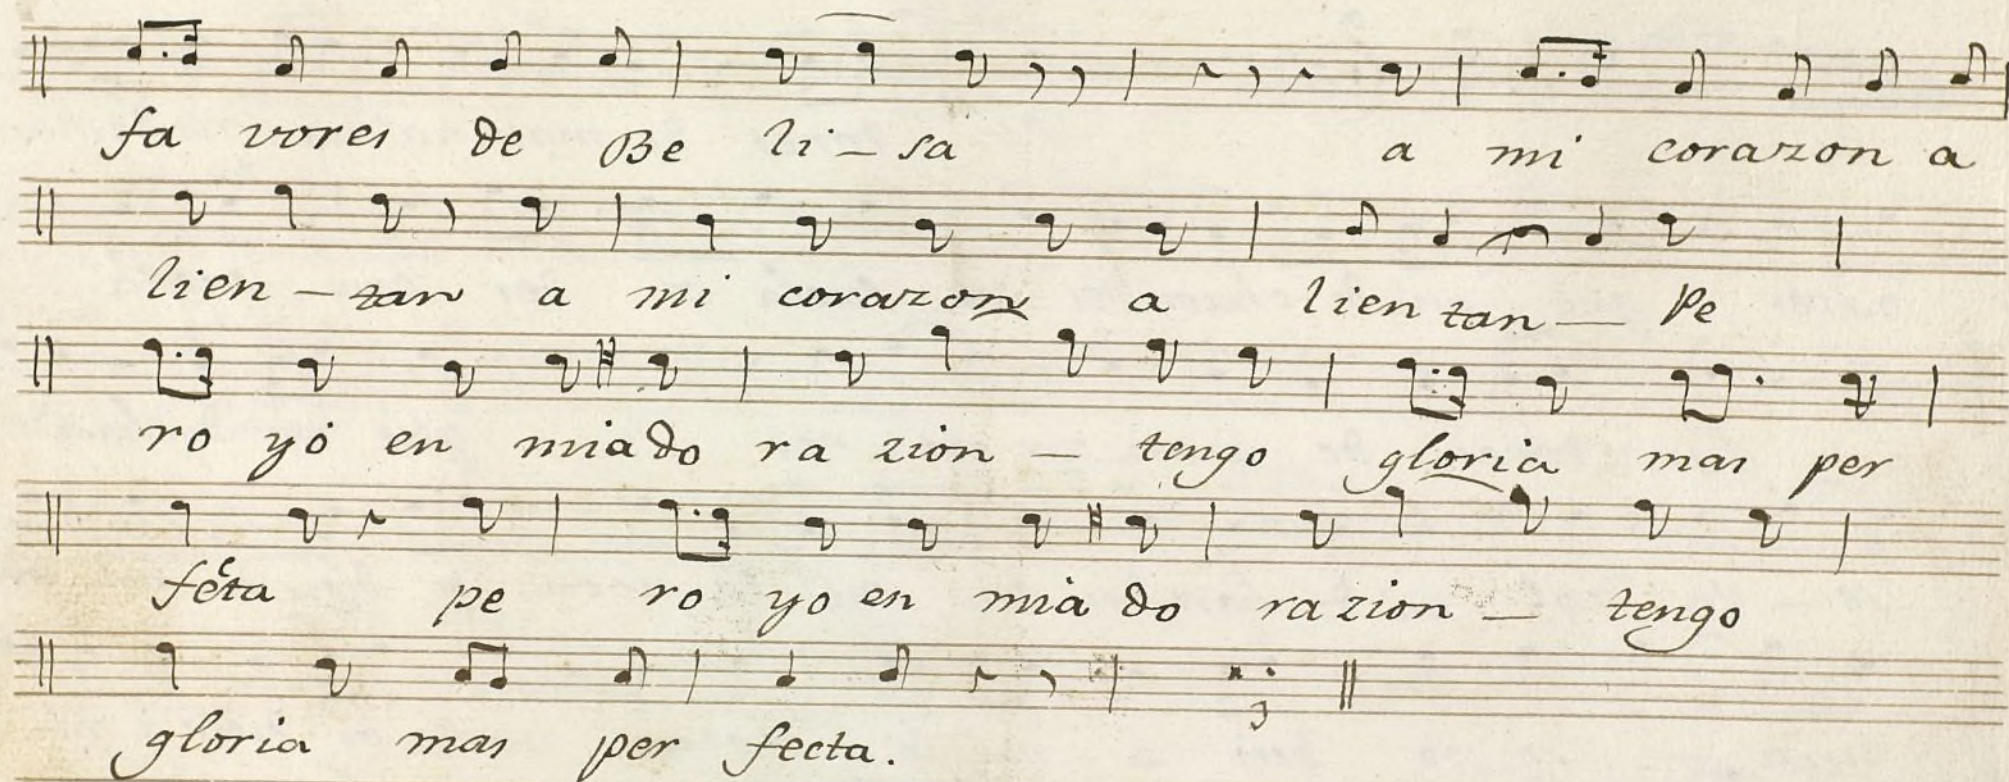 fa vores de Be li – sa a mi corazon a
lien – tan a mi corazon a lien tan — Pe
ro yo en miado ra zion — tengo gloria mas per
fecta pe ro yo en mia do ra zion — tengo
gloria mas per fecta.